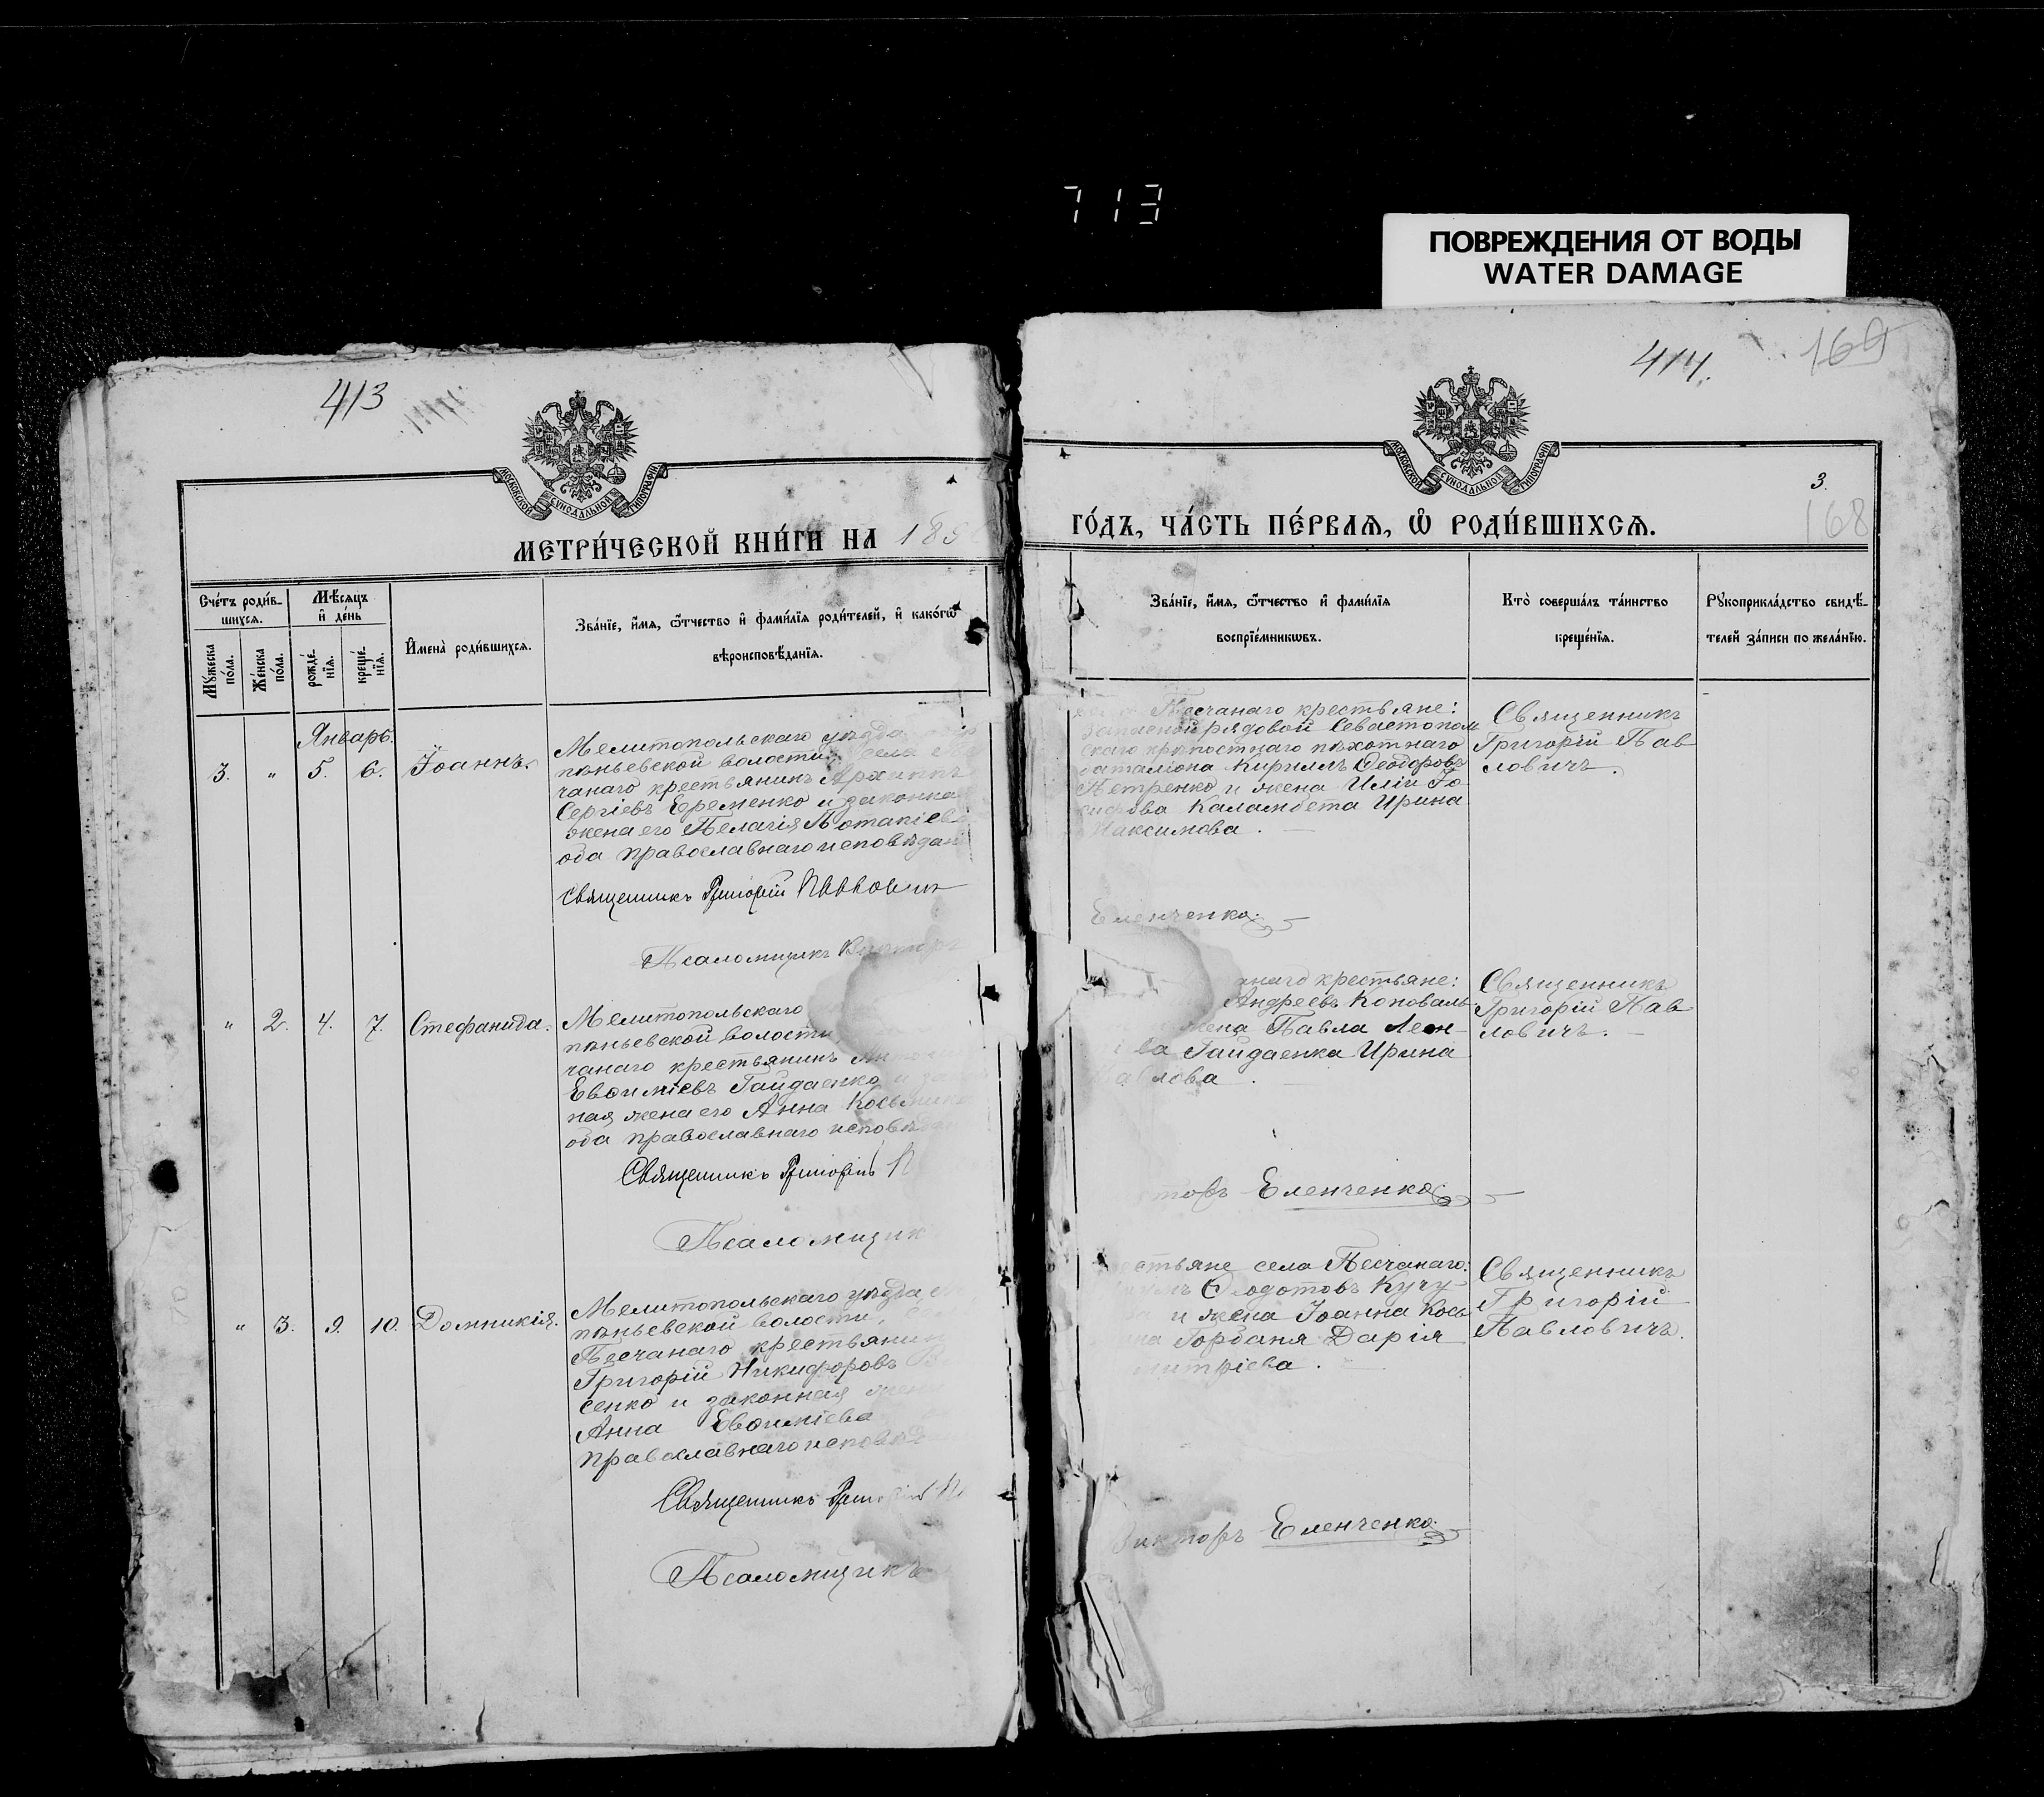 713
ПОВРЕЖДЕНИЯ ОТ ВОДЫ
WATER DAMAGE
413
МОСКОВСКОЙ СѴНОДАЛЬНОЙ ТИПОГРАФІИ
МЕТРИ́ЧЕСКОЙ КНИ́ГИ НА 189
Сче́тъ роди́в-
шихсѧ.
Мѣ́сѧцъ
и҆ де́нь
Мꙋ́жеска
по́ла.
Же́нска
по́ла.
рожде́-
нїѧ.
креще́-
нїѧ.
И҆мена̀ роди́вшихсѧ.
Зва́нїе, и҆́мѧ, ѻ҆́тчество и҆ фами́лїѧ роди́телей, и҆ како́гѡ
вѣроисповѣ́данїѧ.
Январь.
3. " 5. 6. Іоаннъ.
Мелитопольскаго уѣзда
паньевской волости, села
чанаго крестьянинъ Архиппъ
Сергіевъ Еременко и законная
жена его Пелагія Потапіева
оба православнаго исповѣдані
Священникъ Григорій Павловичъ
Псаломщикъ Викторъ
" 2. 4. 7. Стефанида.
Мелитопольскаго
паньевской волости,
чанаго крестьянинъ
Евѳиміевъ Гайдаенко и
ная жена его Анна Косьмина
оба православнаго исповѣдан
Священникъ Григорій П
Псаломщик
" 3. 9. 10. Домникія.
Мелитопольскаго уѣзда
паньевской волости,
Песчанаго крестьянин
Григорій Никифоровъ
сенко и законная жена
Анна Евѳиміева
православнаго исповѣд
Священникъ Григорій П
Псаломщикъ
414.
169
МОСКОВСКОЙ СѴНОДАЛЬНОЙ ТИПОГРАФІИ
3.
168
ГО́ДЪ, ЧА́СТЬ ПЕ́РВАѦ, Ѽ РОДИ́ВШИХСѦ.
Зва́нїе, и҆́мѧ, ѻ҆́тчество и҆ фами́лїѧ
воспрїе́мникѡвъ.
Кто̀ соверша́лъ та́инство
креще́нїѧ.
Рꙋкоприкла́дство свидѣ́-
телей за́писи по жела́нїю.
Песчанаго крестьяне:
запасной рядовой Севастополь
скаго крѣпостнаго пѣхотнаго
баталіона Кириллъ Ѳеодоровъ
Петренко и жена Иліи Іо-
сифова Каламбета Ирина
Максимова.
Священникъ
Григорій Пав
ловичъ.
Еленченко.
анаго крестьяне:
Андреевъ Коповаль-
жена Павла Леон-
ва Гайдаенка Ирина
Павлова.
Священникъ
Григорій Пав
ловичъ.
торъ Еленченко
естьяне села Песчанаго:
Ѳеодотовъ Кучу-
и жена Іоанна Кось
на Горбаня Дарія
митріева.
Священникъ
Григорій
Павловичъ.
Викторъ Еленченко.